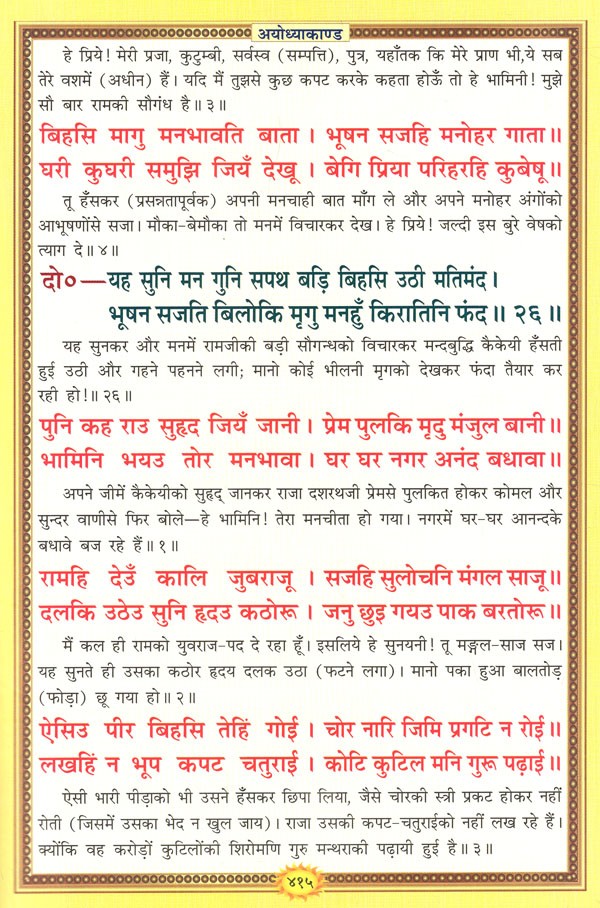 अयोध्याकाण्ड
हे प्रिये! मेरी प्रजा, कुटुम्बी, सर्वस्व (सम्पत्ति), पुत्र, यहाँतक कि मेरे प्राण भी,ये सब
तेरे वशमें (अधीन) हैं। यदि मैं तुझसे कुछ कपट करके कहता होऊँ तो हे भामिनी! मुझे
सौ बार रामकी सौगंध है॥३॥
बिहसि मागु मनभावति बाता। भूषन सजहि मनोहर गाता॥
घरी कुघरी समुझि जियँ देखू। बेगि प्रिया परिहरहि कुबेषू॥
तू हँसकर (प्रसन्नतापूर्वक) अपनी मनचाही बात माँग ले और अपने मनोहर अंगोंको
आभूषणोंसे सजा। मौका-बेमौका तो मनमें विचारकर देख। हे प्रिये! जल्दी इस बुरे वेषको
त्याग दे॥४॥
दो०—यह सुनि मन गुनि सपथ बड़ि बिहसि उठी मतिमंद।
भूषन सजति बिलोकि मृगु मनहुँ किरातिनि फंद॥ २६॥
यह सुनकर और मनमें रामजीकी बड़ी सौगन्धको विचारकर मन्दबुद्धि कैकेयी हँसती
हुई उठी और गहने पहनने लगी; मानो कोई भीलनी मृगको देखकर फंदा तैयार कर
रही हो!॥२६॥
पुनि कह राउ सुहृद जियँ जानी। प्रेम पुलकि मृदु मंजुल बानी॥
भामिनि भयउ तोर मनभावा। घर घर नगर अनंद बधावा॥
अपने जीमें कैकेयीको सुहृद् जानकर राजा दशरथजी प्रेमसे पुलकित होकर कोमल और
सुन्दर वाणीसे फिर बोले—हे भामिनि! तेरा मनचीता हो गया। नगरमें घर-घर आनन्दके
बधावे बज रहे हैं॥१॥
रामहि देउँ कालि जुबराजू। सजहि सुलोचनि मंगल साजू॥
दलकि उठेउ सुनि हृदउ कठोरू। जनु छुइ गयउ पाक बरतोरू॥
मैं कल ही रामको युवराज-पद दे रहा हूँ। इसलिये हे सुनयनी! तू मङ्गल-साज सज।
यह सुनते ही उसका कठोर हृदय दलक उठा (फटने लगा)। मानो पका हुआ बालतोड़
(फोड़ा) छू गया हो॥२॥
ऐसिउ पीर बिहसि तेहिं गोई। चोर नारि जिमि प्रगटि न रोई॥
लखहिं न भूप कपट चतुराई। कोटि कुटिल मनि गुरू पढ़ाई॥
ऐसी भारी पीड़ाको भी उसने हँसकर छिपा लिया, जैसे चोरकी स्त्री प्रकट होकर नहीं
रोती (जिसमें उसका भेद न खुल जाय)। राजा उसकी कपट-चतुराईको नहीं लख रहे हैं।
क्योंकि वह करोड़ों कुटिलोंकी शिरोमणि गुरु मन्थराकी पढ़ायी हुई है॥३॥
४१५